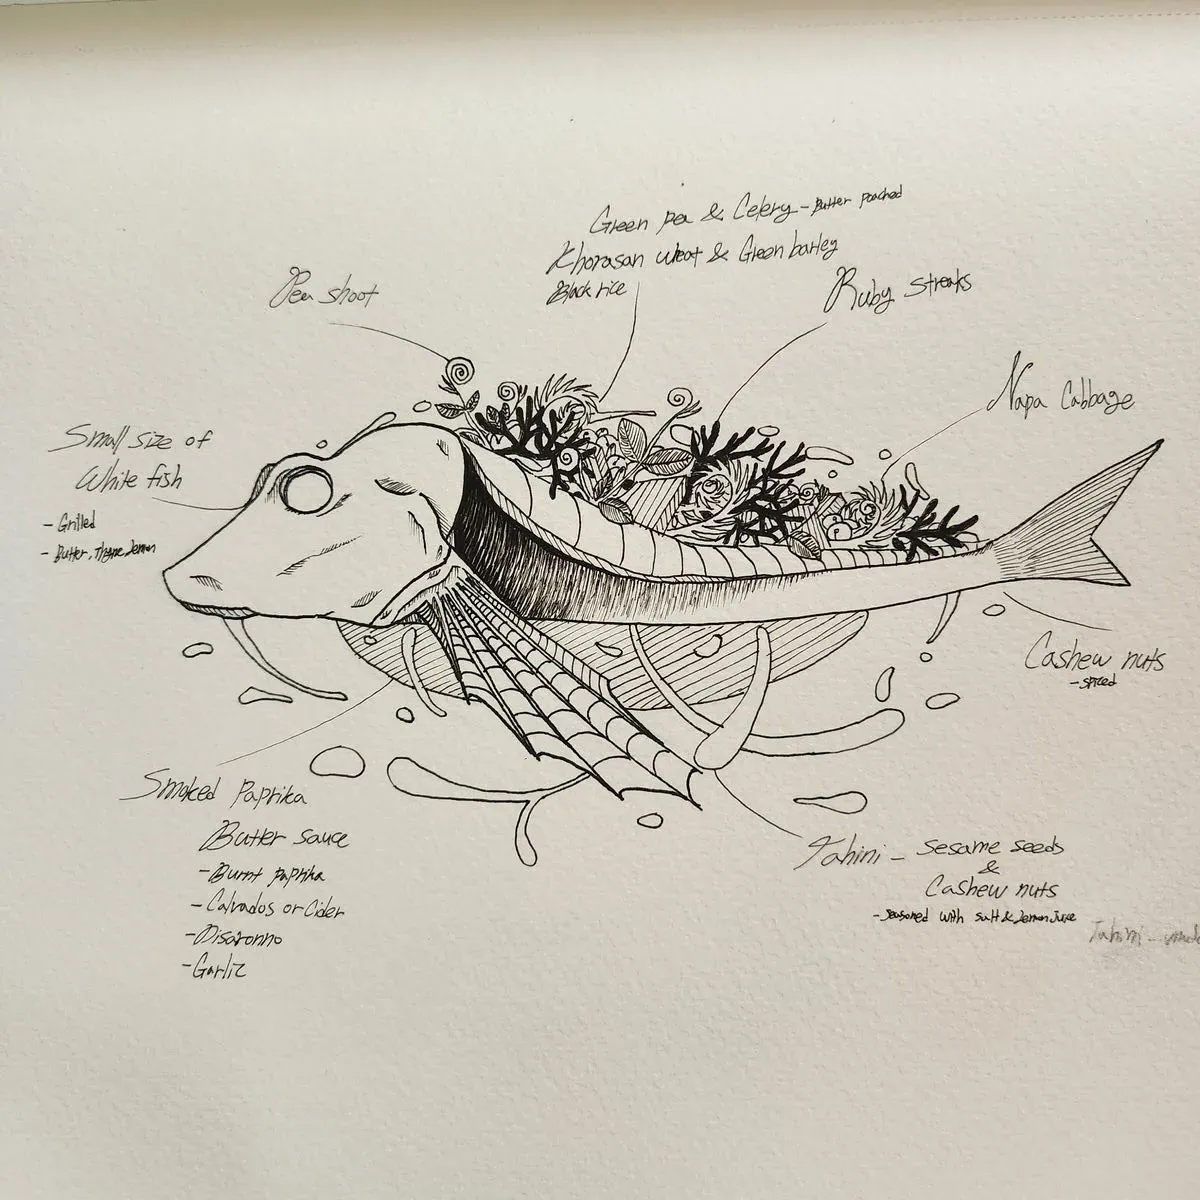 Green pea & Celery - Butter poached
Khorasan wheat & Green barley
Black rice
Pea shoot
Ruby streaks
Napa Cabbage
Small size of
White fish
- Grilled
- Butter, Thyme, Lemon
Cashew nuts
- spiced
Smoked Paprika
Butter sauce
- Burnt paprika
- Calvados or Cider
- Disaronno
- Garlic
Tahini - Sesame seeds
&
Cashew nuts
- seasoned with salt & Lemon Juice
Tahini -